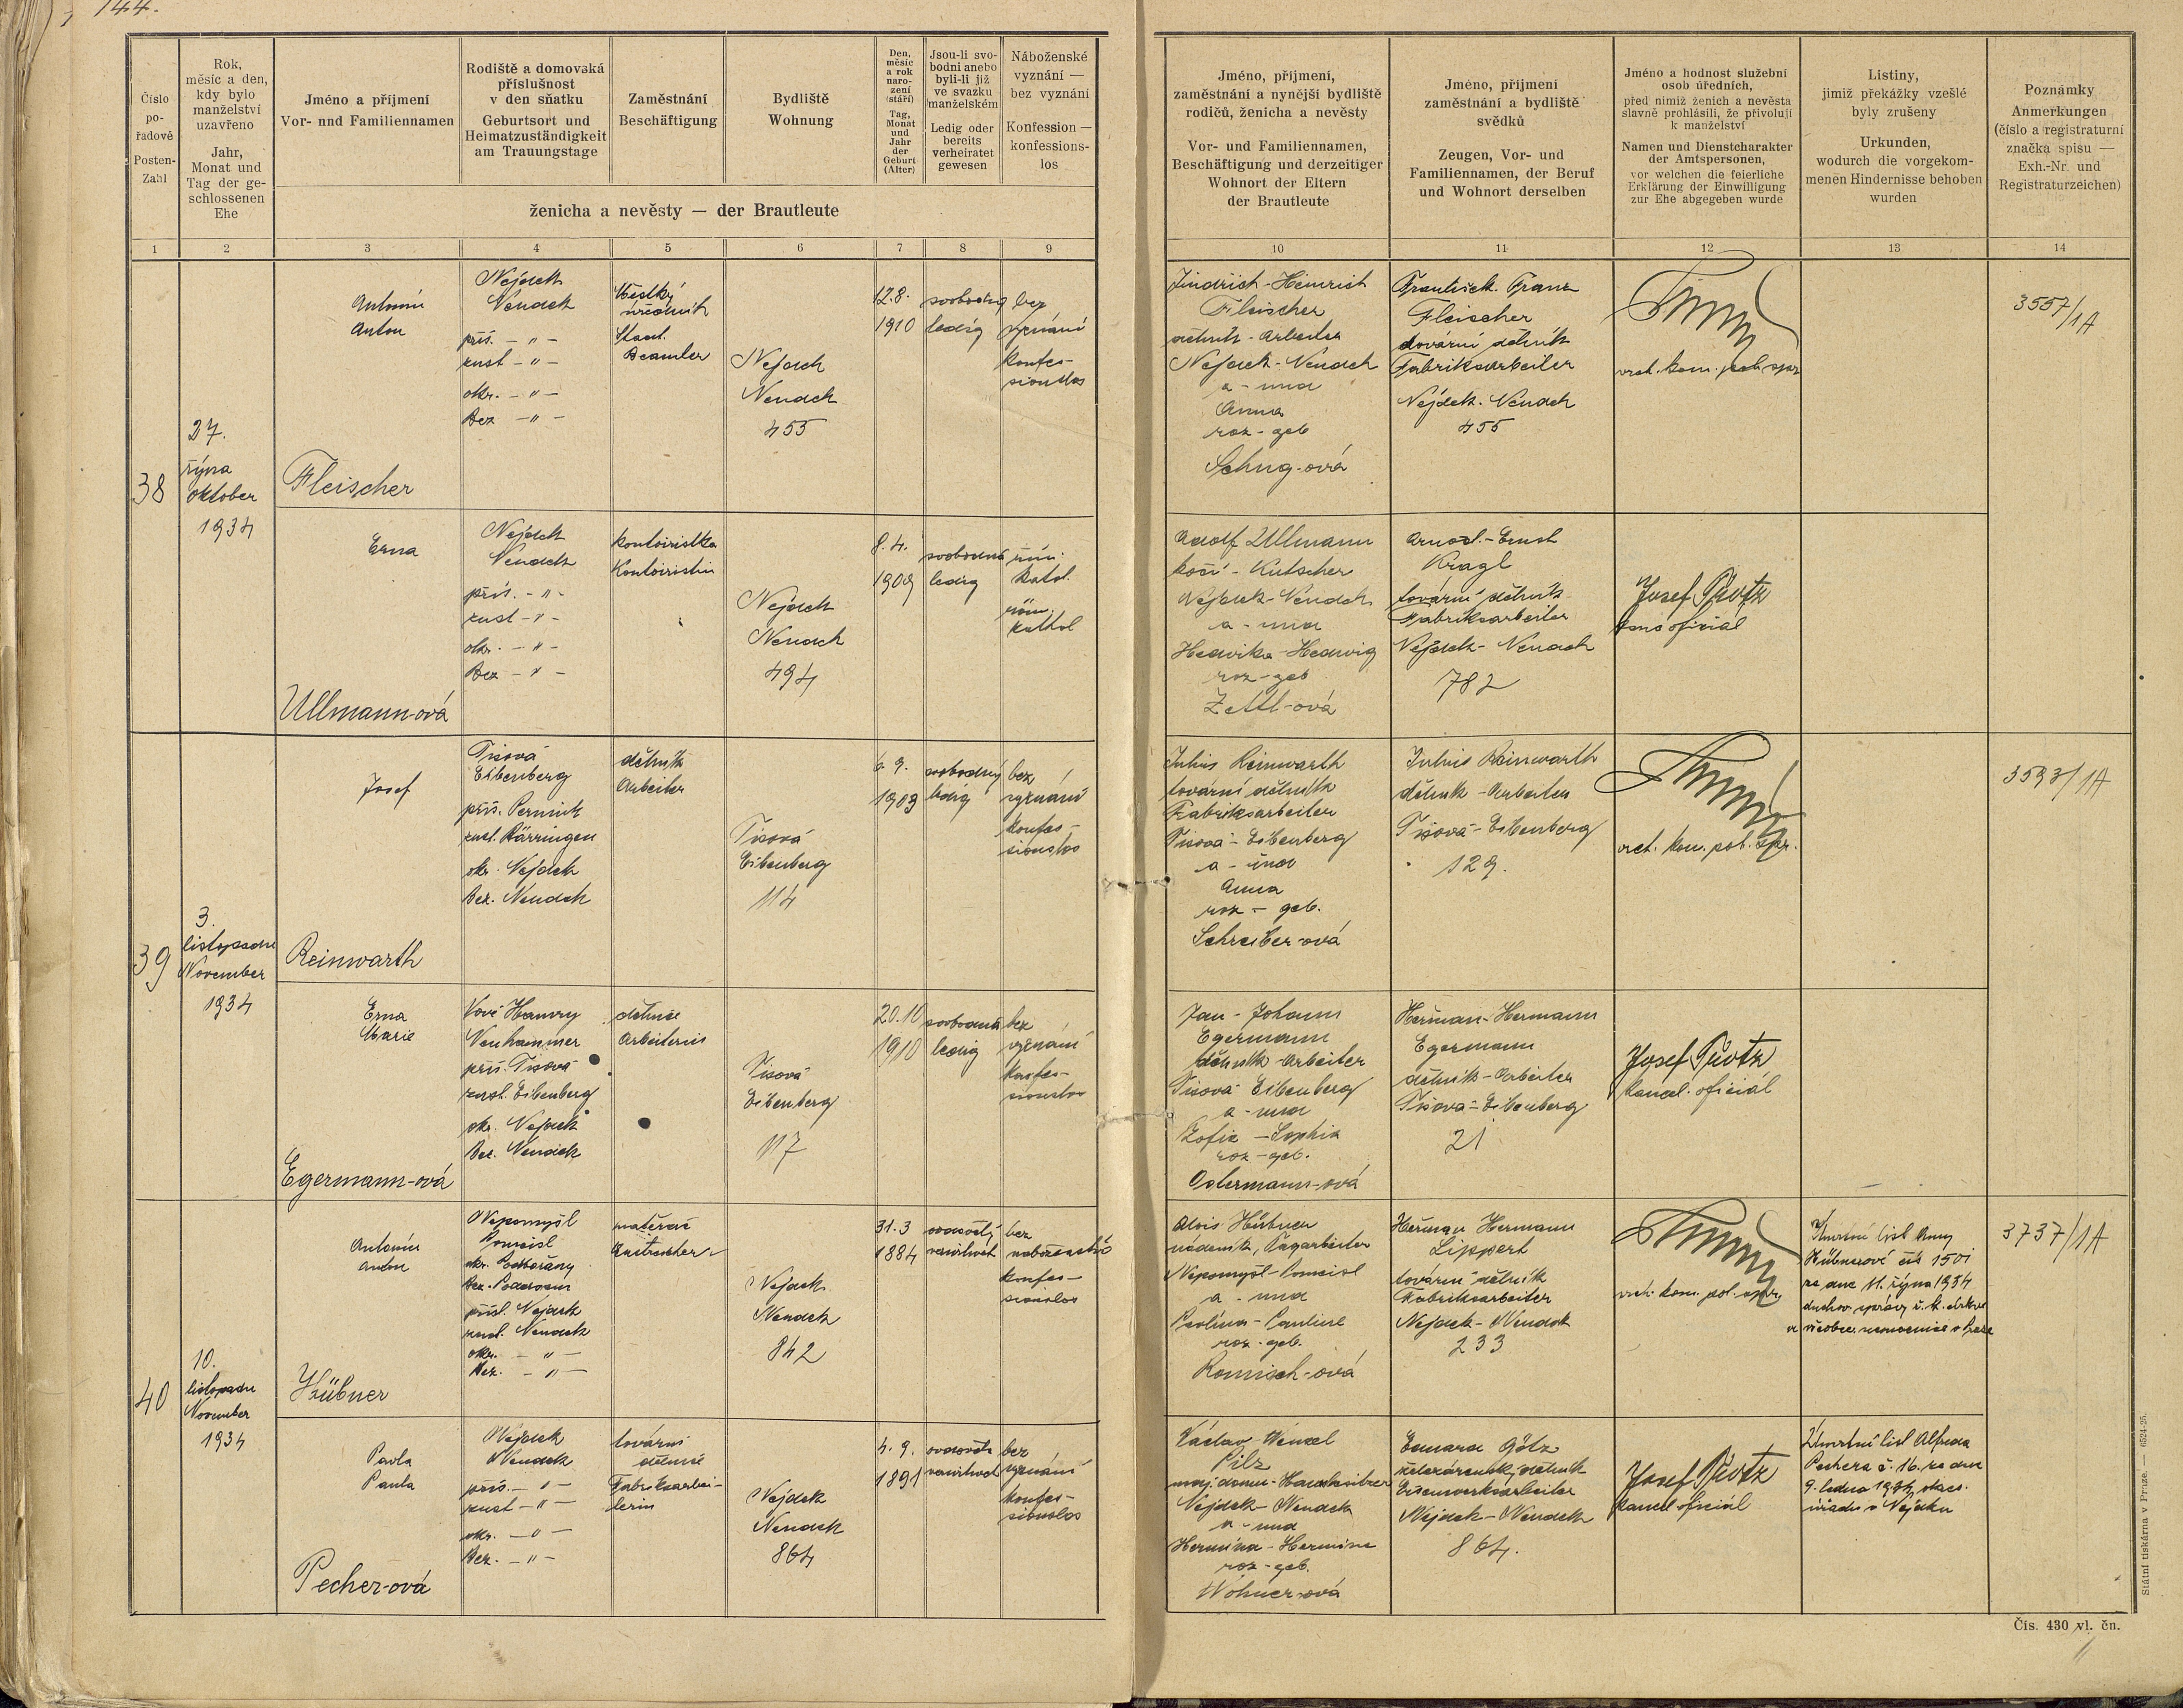 144.
Číslo
po-
řadové
Posten-
Zahl
Rok,
měsíc a den,
kdy bylo
manželství
uzavřeno
Jahr,
Monat und
Tag der ge-
schlossenen
Ehe
Jméno a příjmení
Vor- nnd Familiennamen
Rodiště a domovská
příslušnost
v den sňatku
Geburtsort und
Heimatzuständigkeit
am Trauungstage
Zaměstnání
Beschäftigung
Bydliště
Wohnung
Den,
měsíc
a rok
naro-
zení
(stáří)
Tag,
Monat
und
Jahr
der
Geburt
(Alter)
Jsou-li svo-
bodni anebo
byli-li již
ve svazku
manželském
Ledig oder
bereits
verheiratet
gewesen
Náboženské
vyznání —
bez vyznání
Konfession —
konfessions-
los
ženicha a nevěsty — der Brautleute
Jméno, příjmení,
zaměstnání a nynější bydliště
rodičů, ženicha a nevěsty
Vor- und Familiennamen,
Beschäftigung und derzeitiger
Wohnort der Eltern
der Brautleute
Jméno, příjmení
zaměstnání a bydliště
svědků
Zeugen, Vor- und
Familiennamen, der Beruf
und Wohnort derselben
Jméno a hodnost služební
osob úředních,
před nimiž ženich a nevěsta
slavně prohlásili, že přivolují
k manželství
Namen und Dienstcharakter
der Amtspersonen,
vor welchen die feierliche
Erklärung der Einwilligung
zur Ehe abgegeben wurde
Listiny,
jimiž překážky vzešlé
byly zrušeny
Urkunden,
wodurch die vorgekom-
menen Hindernisse behoben
wurden
Poznámky
Anmerkungen
(číslo a registraturní
značka spisu —
Exh.-Nr. und
Registraturzeichen)
1 2 3 4 5 6 7 8 9 10 11 12 13 14
38
27.
října
oktober
1934
Antonín
Anton
Fleischer
Nejdek
Neudek
přís. - " -
zust - " -
okr. - " -
Bez - " -
úředník
Staat.
Beamter
Nejdek
Neudek
455
12.8.
1910
svobodný
ledig
bez
vyznání
konfes-
sionslos
Jindřich-Heinrich
Fleischer
dělník-Arbeiter
Nejdek-Neudek
a - und
Anna
roz - geb
Schug-ová
František-Franz
Fleischer
tovární dělník
Fabriksarbeiter
Nejdek-Neudek
455
vrch. kom. pol. spr.
3557/1A
Erna
Ullmann-ová
Nejdek
Neudek
přís. - " -
zust - " -
okr. - " -
Bez - " -
kontoiristka
Kontoiristin
Nejdek
Neudek
494
8.4.
1909
svobodná
ledig
řím.
katol.
röm.
kathol
Adolf Ullmann
kočí - Kutscher
Nejdek-Neudek
a - und
Hedvika-Hedwig
roz - geb
Zettl-ová
Arnošt-Ernst
Kragl
tovární dělník
Fabriksarbeiter
Nejdek-Neudek
782
Josef
39
3.
listopadu
November
1934
Josef
Reinwarth
Tisová
Eibenberg
přís. Pernink
zust. Bärringen
okr. Nejdek
Bez. Neudek
dělník
Arbeiter
Tisová
Eibenberg
114
6.9.
1909
svobodný
ledig
bez
vyznání
konfes-
sionslos
Julius Reinwarth
tovární dělník
Fabriksarbeiter
Tisová-Eibenberg
a - und
Anna
roz - geb.
Schreiber-ová
Julius Reinwarth
dělník-Arbeiter
Tisová-Eibenberg
129.
vrch. kom. pol. spr.
3593/1A
Erna
Marie
Egermann-ová
Nové Hamry
Neuhammer
přís. Tisová
zust. Eibenberg
okr. Nejdek
Bez. Neudek
dělnice
Arbeiterin
Tisová
Eibenberg
117
20.10
1910
svobodná
ledig
bez
vyznání
konfes-
sionslos
Jan - Johann
Egermann
dělník-Arbeiter
Tisová Eibenberg
a - und
Žofie - Sophia
roz - geb.
Ostermann-ová
Heřman-Hermann
Egermann
dělník-Arbeiter
Tisová-Eibenberg
21
Josef
kancel. oficiál
40
10.
listopadu
November
1934
Antonín
Anton
Hübner
Nepomyšl
Pomeisl
okr. Podbořany
Bez. Podersam
přísl. Nejdek
zust. Neudek
okr. - " -
Bez. - " -
Nejdek
Neudek
842
31.3
1884
ovdovělý
verwitwet
bez
náboženství
konfes-
sionslos
Alois Hübner
nádeník, Tagarbeiter
Nepomyšl-Pomeisl
a - und
Paulina-Pauline
roz - geb.
Romisch-ová
Heřman Hermann
Lippert
tovární dělník
Fabriksarbeiter
Nejdek-Neudek
233
vrch. kom. pol. spr.
Úmrtní list Anny
Hübnerové čís 1501
ze dne 11. října 1934
duchov. správy
všeobec. nemocnice v Praze
3737/1A
Pavla
Paula
Pecher-ová
Nejdek
Neudek
přís. - " -
zust - " -
okr. - " -
Bez. - " -
tovární
dělnice
Fabriksarbei-
terin
Nejdek
Neudek
864
4.9.
1891
ovdověla
verwitwet
bez
vyznání
konfes-
sionslos
Václav-Wenzel
Pilz
maj. domu-Hausbesitzer
Nejdek-Neudek
a - und
Hermína-Hermine
roz - geb.
Wohner-ová
Eduard Götz
železárensk. dělník
Eisenwerksarbeiter
Nejdek-Neudek
864.
Josef
kancel oficiál
Úmrtní list Alfreda
Pechera č. 16. ze dne
úřadu v Nejdku
Státní tiskárna v Praze. — 6524-25.
Čís. 430 vl. čn.